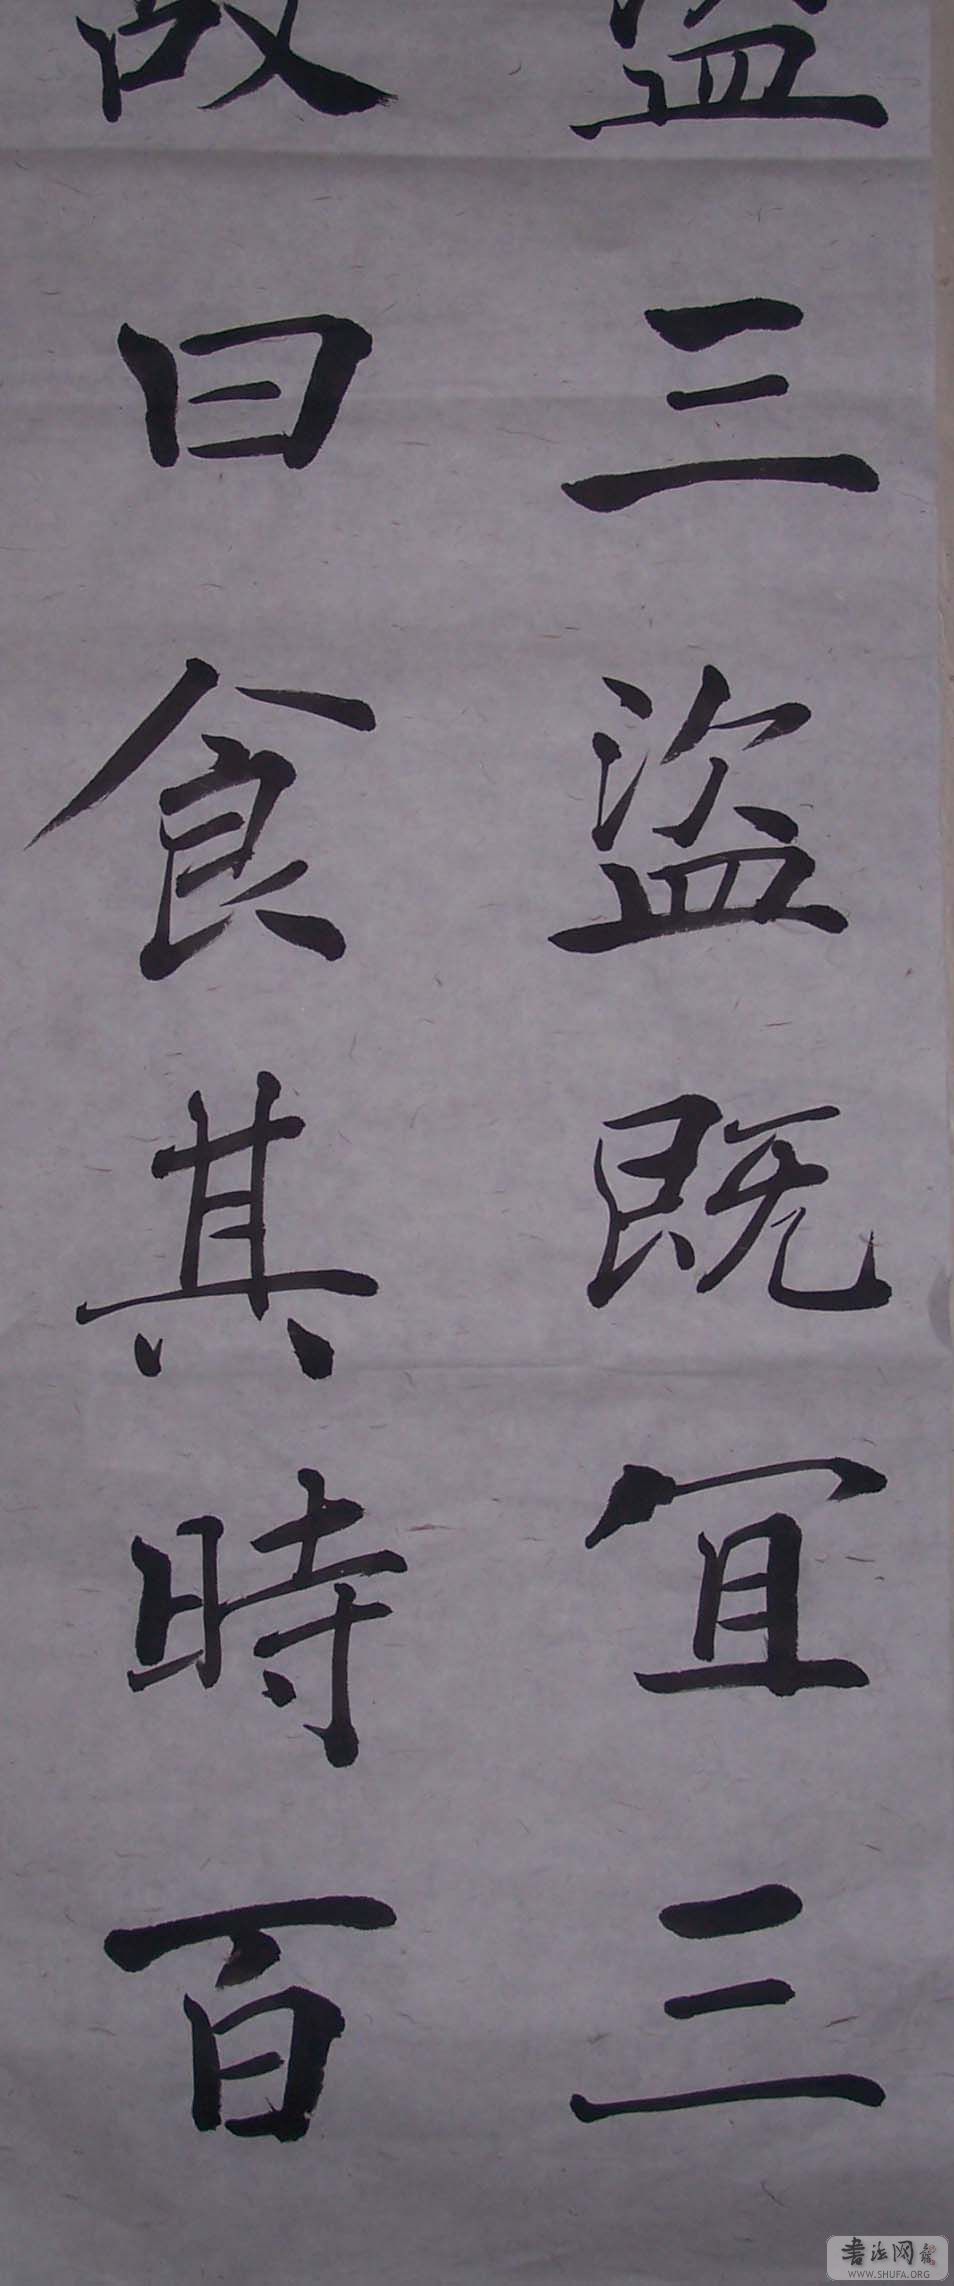 盜三盜既宜三
故曰食其時百
書法网
WWW.SHUFA.ORG